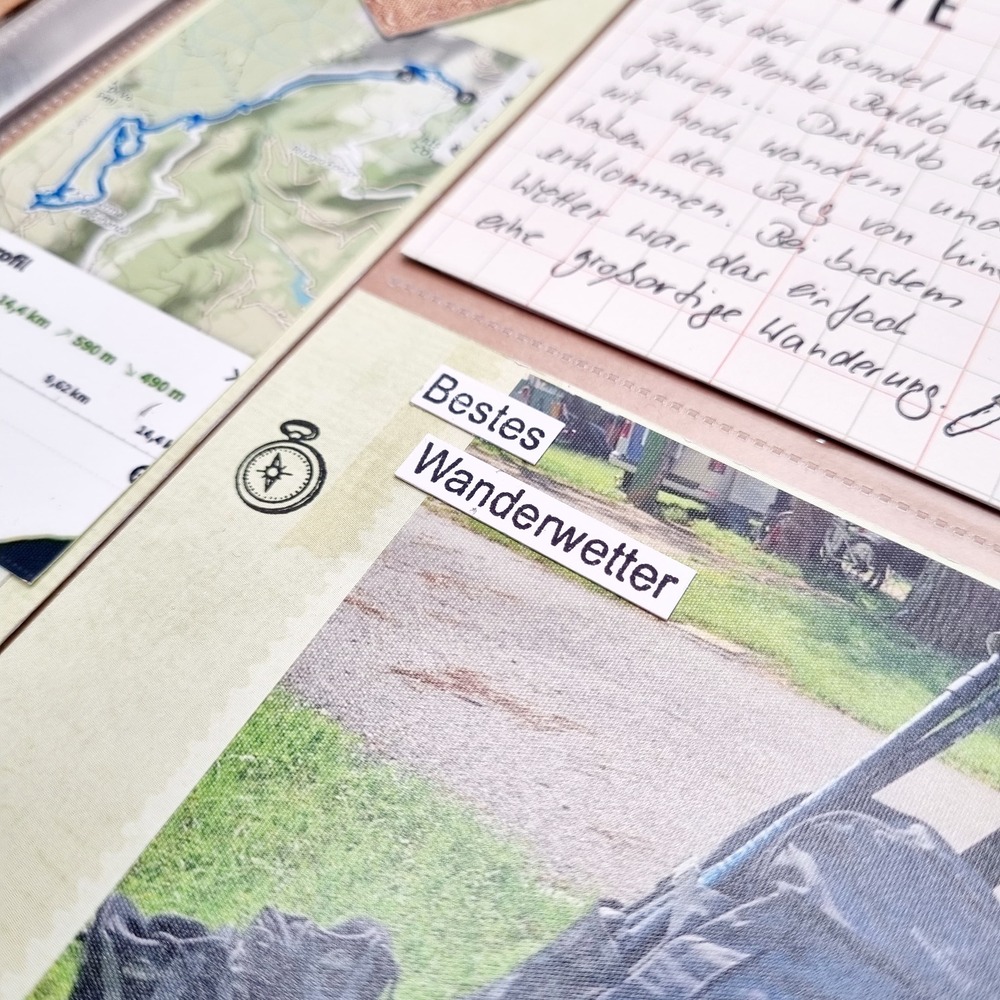 Mit der Gondel
zum Monte Baldo
fahren... Deshalb
wir hoch wandern und
haben den Berg von
erklommen. Bei bestem
Wetter war das einfach
eine großartige Wanderung.
14,4 km ↗ 590 m ↘ 490 m
9,62 km
Bestes
Wanderwetter